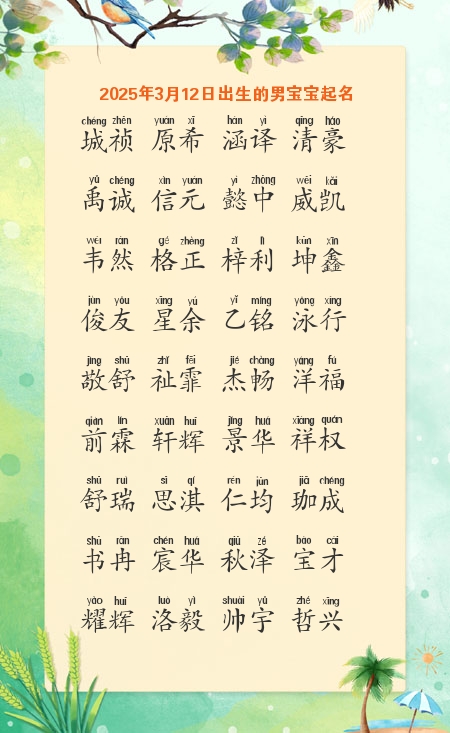 2025年3月12日出生的男宝宝起名
chéng zhēn yuán xī hán yì qīng háo
城祯 原希 涵译 清豪
yǔ chéng xìn yuán yì zhōng wēi kǎi
禹诚 信元 懿中 威凯
wéi rán gé zhèng zǐ lì kūn xīn
韦然 格正 梓利 坤鑫
jùn yǒu xīng yú yǐ míng yǒng xíng
俊友 星余 乙铭 泳行
jìng shū zhǐ fēi jié chàng yáng fú
敬舒 祉霏 杰畅 洋福
qián lín xuān huī jǐng huá xiáng quán
前霖 轩辉 景华 祥权
shū ruì sī qí rén jūn jiā chéng
舒瑞 思淇 仁均 珈成
shū rǎn chén huá qiū zé bǎo cái
书冉 宸华 秋泽 宝才
yào huī luò yì shuài yǔ zhé xīng
耀辉 洛毅 帅宇 哲兴